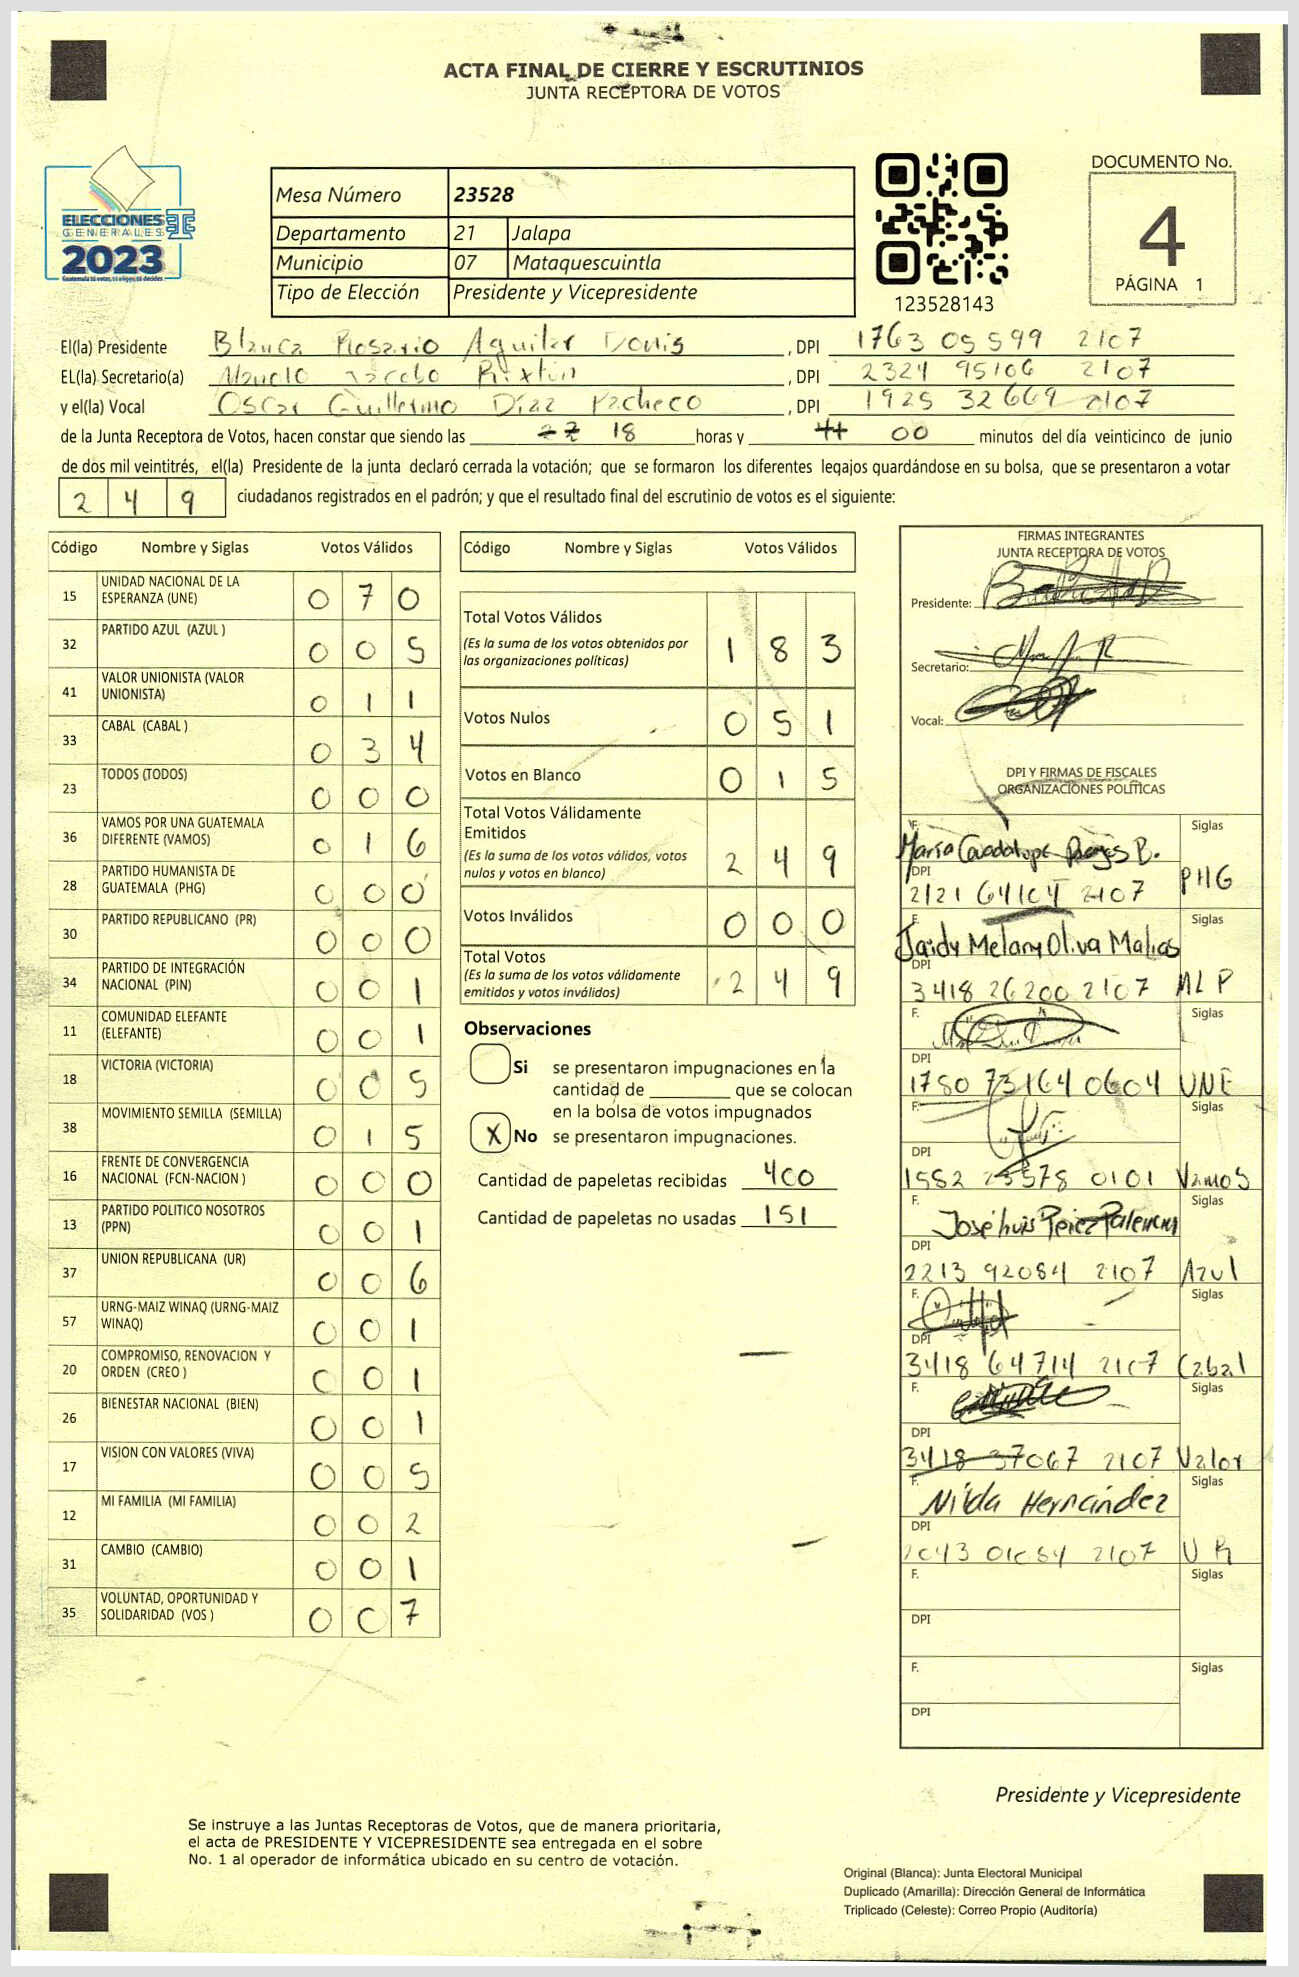 ACTA FINAL DE CIERRE Y ESCRUTINIOS
JUNTA RECEPTORA DE VOTOS
ELECCIONES
GENERALES
2023
Guatemala tú votas, tú eliges, tú decides
Mesa Número 23528
Departamento 21 Jalapa
Municipio 07 Mataquescuintla
Tipo de Elección Presidente y Vicepresidente
123528143
DOCUMENTO No.
4
PÁGINA 1
El(la) Presidente Blanca Rosario Aguilar Donis , DPI 1763 05599 2107
EL(la) Secretario(a) Manolo Jacobo , DPI 2324 95106 2107
y el(la) Vocal Oscar Guillermo Díaz Pacheco , DPI 1925 32669 2107
de la Junta Receptora de Votos, hacen constar que siendo las 18 horas y 00 minutos del día veinticinco de junio
de dos mil veintitrés, el(la) Presidente de la junta declaró cerrada la votación; que se formaron los diferentes legajos guardándose en su bolsa, que se presentaron a votar
2 4 9 ciudadanos registrados en el padrón; y que el resultado final del escrutinio de votos es el siguiente:
Código Nombre y Siglas Votos Válidos
15 UNIDAD NACIONAL DE LA ESPERANZA (UNE) 0 7 0
32 PARTIDO AZUL (AZUL ) 0 0 5
41 VALOR UNIONISTA (VALOR UNIONISTA) 0 1 1
33 CABAL (CABAL ) 0 3 4
23 TODOS (TODOS) 0 0 0
36 VAMOS POR UNA GUATEMALA DIFERENTE (VAMOS) 0 1 6
28 PARTIDO HUMANISTA DE GUATEMALA (PHG) 0 0 0
30 PARTIDO REPUBLICANO (PR) 0 0 0
34 PARTIDO DE INTEGRACIÓN NACIONAL (PIN) 0 0 1
11 COMUNIDAD ELEFANTE (ELEFANTE) 0 0 1
18 VICTORIA (VICTORIA) 0 0 5
38 MOVIMIENTO SEMILLA (SEMILLA) 0 1 5
16 FRENTE DE CONVERGENCIA NACIONAL (FCN-NACION ) 0 0 0
13 PARTIDO POLITICO NOSOTROS (PPN) 0 0 1
37 UNION REPUBLICANA (UR) 0 0 6
57 URNG-MAIZ WINAQ (URNG-MAIZ WINAQ) 0 0 1
20 COMPROMISO, RENOVACION Y ORDEN (CREO ) 0 0 1
26 BIENESTAR NACIONAL (BIEN) 0 0 1
17 VISION CON VALORES (VIVA) 0 0 5
12 MI FAMILIA (MI FAMILIA) 0 0 2
31 CAMBIO (CAMBIO) 0 0 1
35 VOLUNTAD, OPORTUNIDAD Y SOLIDARIDAD (VOS ) 0 0 7
Código Nombre y Siglas Votos Válidos
Total Votos Válidos
(Es la suma de los votos obtenidos por las organizaciones políticas) 1 8 3
Votos Nulos 0 5 1
Votos en Blanco 0 1 5
Total Votos Válidamente Emitidos
(Es la suma de los votos válidos, votos nulos y votos en blanco) 2 4 9
Votos Inválidos 0 0 0
Total Votos
(Es la suma de los votos válidamente emitidos y votos inválidos) 2 4 9
Observaciones
Si se presentaron impugnaciones en la
cantidad de ________ que se colocan
en la bolsa de votos impugnados
X No se presentaron impugnaciones.
Cantidad de papeletas recibidas 400
Cantidad de papeletas no usadas 151
FIRMAS INTEGRANTES
JUNTA RECEPTORA DE VOTOS
Presidente:
Secretario:
Vocal:
DPI Y FIRMAS DE FISCALES
ORGANIZACIONES POLÍTICAS
F. María Guadalupe B. Siglas
DPI 2121 64104 2107 PHG
F. Jaidy Melany Oliva Siglas
DPI 3418 26200 2107 MLP
F. Siglas
DPI 1780 73164 0604 UNE
F. Siglas
DPI 1582 0101 Vamos
F. José Luis Pérez Palencia Siglas
DPI 2213 92084 2107 Azul
F. Siglas
DPI 3418 64714 2107 Cabal
F. Siglas
DPI 3418 37067 2107 Valor
F. Nilda Hernández Siglas
DPI 2043 01084 2107 UR
F. Siglas
DPI
F. Siglas
DPI
Presidente y Vicepresidente
Se instruye a las Juntas Receptoras de Votos, que de manera prioritaria,
el acta de PRESIDENTE Y VICEPRESIDENTE sea entregada en el sobre
No. 1 al operador de informática ubicado en su centro de votación.
Original (Blanca): Junta Electoral Municipal
Duplicado (Amarilla): Dirección General de Informática
Triplicado (Celeste): Correo Propio (Auditoría)